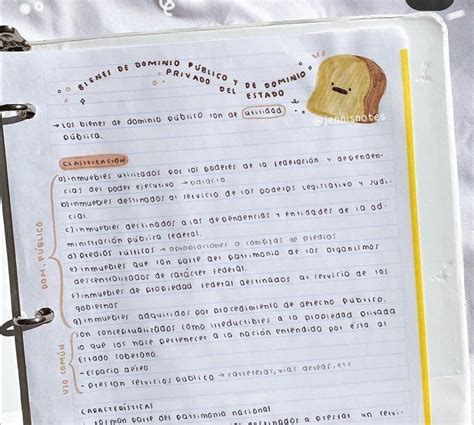 BIENES DE DOMINIO PÚBLICO Y DE DOMINIO
PRIVADO DEL ESTADO
@jennisnotes
→ Los bienes de dominio público son de utilidad
pública.
CLASIFICACIÓN
a) inmuebles utilizados por los poderes de la federación y dependen-
cias del poder ejecutivo → palacio
b) inmuebles destinados al servicio de los poderes legislativo y judi-
cial.
c) inmuebles destinados a las dependencias y entidades de la ad-
ministración pública federal.
d) predios rústicos → apropiaciones o compras de predios
e) inmuebles que son parte del patrimonio de los organismos
descentralizados de carácter federal.
f) inmuebles de propiedad federal destinados al servicio de los
gobiernos
g) inmuebles adquiridos por procedimiento de derecho público.
DOM. PÚBLICO
son conceptualizados como irreductibles a la propiedad privada
lo que los hace pertenecer a la nación entendido por esta al
Estado soberano.
- Espacio aéreo
- Presten servicios público → carreteras, vías aéreas, etc
USO COMÚN
CARACTERÍSTICAS
forman parte del patrimonio nacional
destinados a prestar un servi-